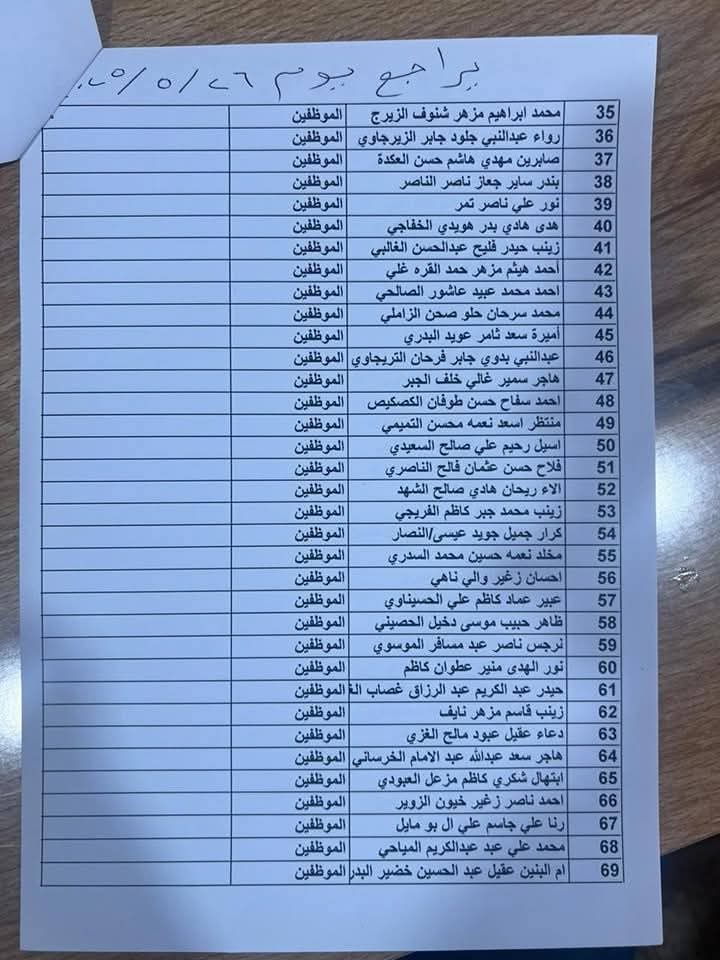 يراجع يوم ٢٦/٥/٢٠٢٥
35 محمد ابراهيم مزهر شنوف الزيرج الموظفين
36 رواء عبدالنبي جلود جابر الزيرجاوي الموظفين
37 صابرين مهدي هاشم حسن العكدة الموظفين
38 بندر ساير جعاز ناصر الناصر الموظفين
39 نور علي ناصر تمر الموظفين
40 هدى هادي بدر هويدي الخفاجي الموظفين
41 زينب حيدر فليح عبدالحسن الغالبي الموظفين
42 أحمد هيثم مزهر حمد القره غلي الموظفين
43 احمد محمد عبيد عاشور الصالحي الموظفين
44 محمد سرحان حلو صحن الزاملي الموظفين
45 أميرة سعد ثامر عويد البدري الموظفين
46 عبدالنبي بدوي جابر فرحان التريجاوي الموظفين
47 هاجر سمير غالي خلف الجبر الموظفين
48 احمد سفاح حسن طوفان الكصكيص الموظفين
49 منتظر اسعد نعمه محسن التميمي الموظفين
50 اسيل رحيم علي صالح السعيدي الموظفين
51 فلاح حسن عثمان فالح الناصري الموظفين
52 الاء ريحان هادي صالح الشهد الموظفين
53 زينب محمد جبر كاظم الفريجي الموظفين
54 كرار جميل جويد عيسى/النصار الموظفين
55 مخلد نعمه حسين محمد السدري الموظفين
56 احسان زغير والي ناهي الموظفين
57 عبير عماد كاظم علي الحسيناوي الموظفين
58 ظاهر حبيب موسى دخيل الحصيني الموظفين
59 نرجس ناصر عبد مسافر الموسوي الموظفين
60 نور الهدى منير عطوان كاظم الموظفين
61 حيدر عبد الكريم عبد الرزاق غصاب الغ الموظفين
62 زينب قاسم مزهر نايف الموظفين
63 دعاء عقيل عبود مالح الغزي الموظفين
64 هاجر سعد عبدالله عبد الامام الخرساني الموظفين
65 ابتهال شكري كاظم مزعل العبودي الموظفين
66 احمد ناصر زغير خيون الزوير الموظفين
67 رنا علي جاسم علي ال بو مايل الموظفين
68 محمد علي عبد عبدالكريم المياحي الموظفين
69 ام البنين عقيل عبد الحسين خضير البدر الموظفين